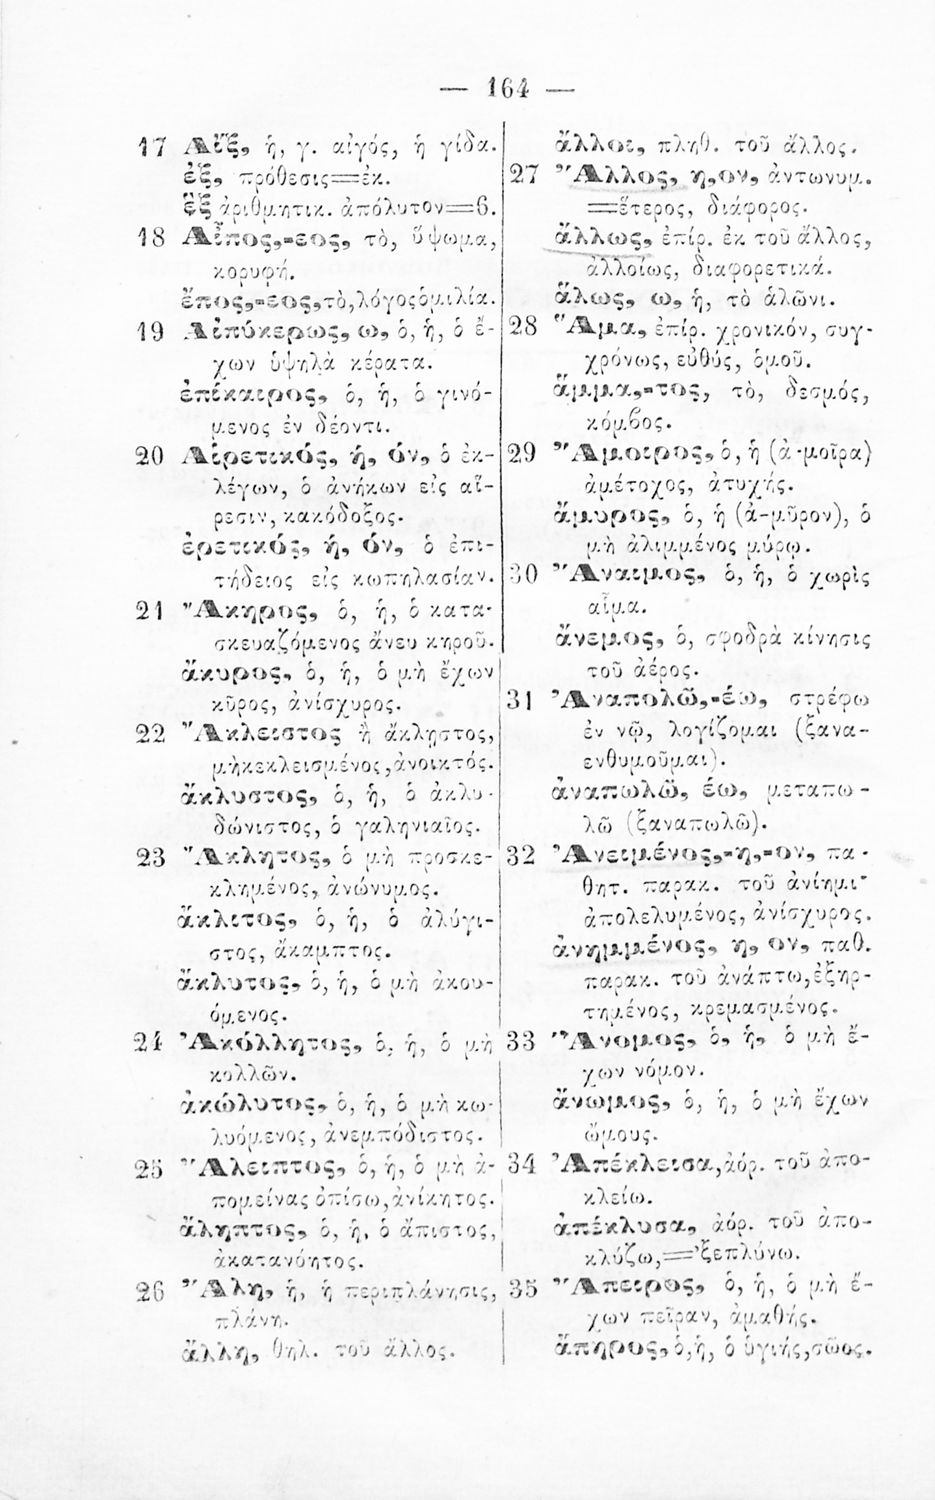 — 164 —
17 Αἴξ, ἡ, γ. αἰγός, ἡ γίδα.
ἐξ, πρόθεσις=ἐκ.
ἓξ ἀριθμητικ. ἀπόλυτον=6.
18 Αἶπος,-εος, τὸ, ὕψωμα,
κορυφή.
ἔπος,-εος,τὸ,λόγοςὁμιλία.
19 Αἰπύκερως, ω, ὁ, ἡ, ὁ ἔ-
χων ὑψηλὰ κέρατα.
ἐπίκαιρος, ὁ, ἡ, ὁ γινό-
μενος ἐν δέοντι.
20 Αἱρετικός, ή, όν, ὁ ἐκ-
λέγων, ὁ ἀνήκων εἰς αἵ-
ρεσιν, κακόδοξος.
ἐρετικός, ή, όν, ὁ ἐπι-
τήδειος εἰς κωπηλασίαν.
21 Ἄκηρος, ὁ, ἡ, ὁ κατα-
σκευαζόμενος ἄνευ κηροῦ.
ἄκυρος, ὁ, ἡ, ὁ μὴ ἔχων
κῦρος, ἀνίσχυρος.
22 Ἄκλειστος ἢ ἄκληστος,
μὴκεκλεισμένος,ἀνοικτός.
ἄκλυστος, ὁ, ἡ, ὁ ἀκλυ-
δώνιστος, ὁ γαληνιαῖος.
23 Ἄκλητος, ὁ μὴ προσκε-
κλημένος, ἀνώνυμος.
ἄκλιτος, ὁ, ἡ, ὁ ἀλύγι-
στος, ἄκαμπτος.
ἄκλυτος, ὁ, ἡ, ὁ μὴ ἀκου-
όμενος.
24 Ἀκόλλητος, ὁ, ἡ, ὁ μὴ
κολλῶν.
ἀκώλυτος, ὁ, ἡ, ὁ μὴ κω-
λυόμενος, ἀνεμπόδιστος.
25 Ἄλειπτος, ὁ, ἡ, ὁ μὴ ἀ-
πομείνας ὀπίσω,ἀνίκητος.
ἄληπτος, ὁ, ἡ, ὁ ἄπιστος,
ἀκατανόητος.
26 Ἄλη, ἡ, ἡ περιπλάνησις,
πλάνη.
ἄλλη, θηλ. τοῦ ἄλλος.
ἄλλοι, πληθ. τοῦ ἄλλος.
27 Ἄλλος, η,ον, ἀντωνυμ.
=ἕτερος, διάφορος.
ἄλλως, ἐπίρ. ἐκ τοῦ ἄλλος,
ἀλλοίως, διαφορετικά.
ἅλως, ω, ἡ, τὸ ἁλῶνι.
28 Ἅμα, ἐπίρ. χρονικόν, συγ-
χρόνως, εὐθύς, ὁμοῦ.
ἅμμα,-τος, τὸ, δεσμός,
κόμβος.
29 Ἄμοιρος, ὁ, ἡ (ἀ-μοῖρα)
ἀμέτοχος, ἀτυχής.
ἄμυρος, ὁ, ἡ (ἀ-μῦρον), ὁ
μὴ ἀλιμμένος μύρῳ.
30 Ἄναιμος, ὁ, ἡ, ὁ χωρὶς
αἷμα.
ἄνεμος, ὁ, σφοδρὰ κίνησις
τοῦ ἀέρος.
31 Ἀναπολῶ,-έω, στρέφω
ἐν νῷ, λογίζομαι (ξανα-
ενθυμοῦμαι).
ἀναπωλῶ, έω, μεταπω-
λῶ (ξαναπωλῶ).
32 Ἀνειμένος,-η,-ον, πα-
θητ. παρακ. τοῦ ἀνίημι·
ἀπολελυμένος, ἀνίσχυρος.
ἀνημμένος, η, ον, παθ.
παρακ. τοῦ ἀνάπτω,ἐξηρ-
τημένος, κρεμασμένος.
33 Ἄνομος, ὁ, ἡ, ὁ μὴ ἔ-
χων νόμον.
ἄνωμος, ὁ, ἡ, ὁ μὴ ἔχων
ὤμους.
34 Ἀπέκλεισα,ἀόρ. τοῦ ἀπο-
κλείω.
ἀπέκλυσα, ἀόρ. τοῦ ἀπο-
κλύζω,=’ξεπλύνω.
35 Ἄπειρος, ὁ, ἡ, ὁ μὴ ἔ-
χων πεῖραν, ἀμαθής.
ἄπηρος, ὁ,ἡ, ὁ ὑγιής,σῶος.